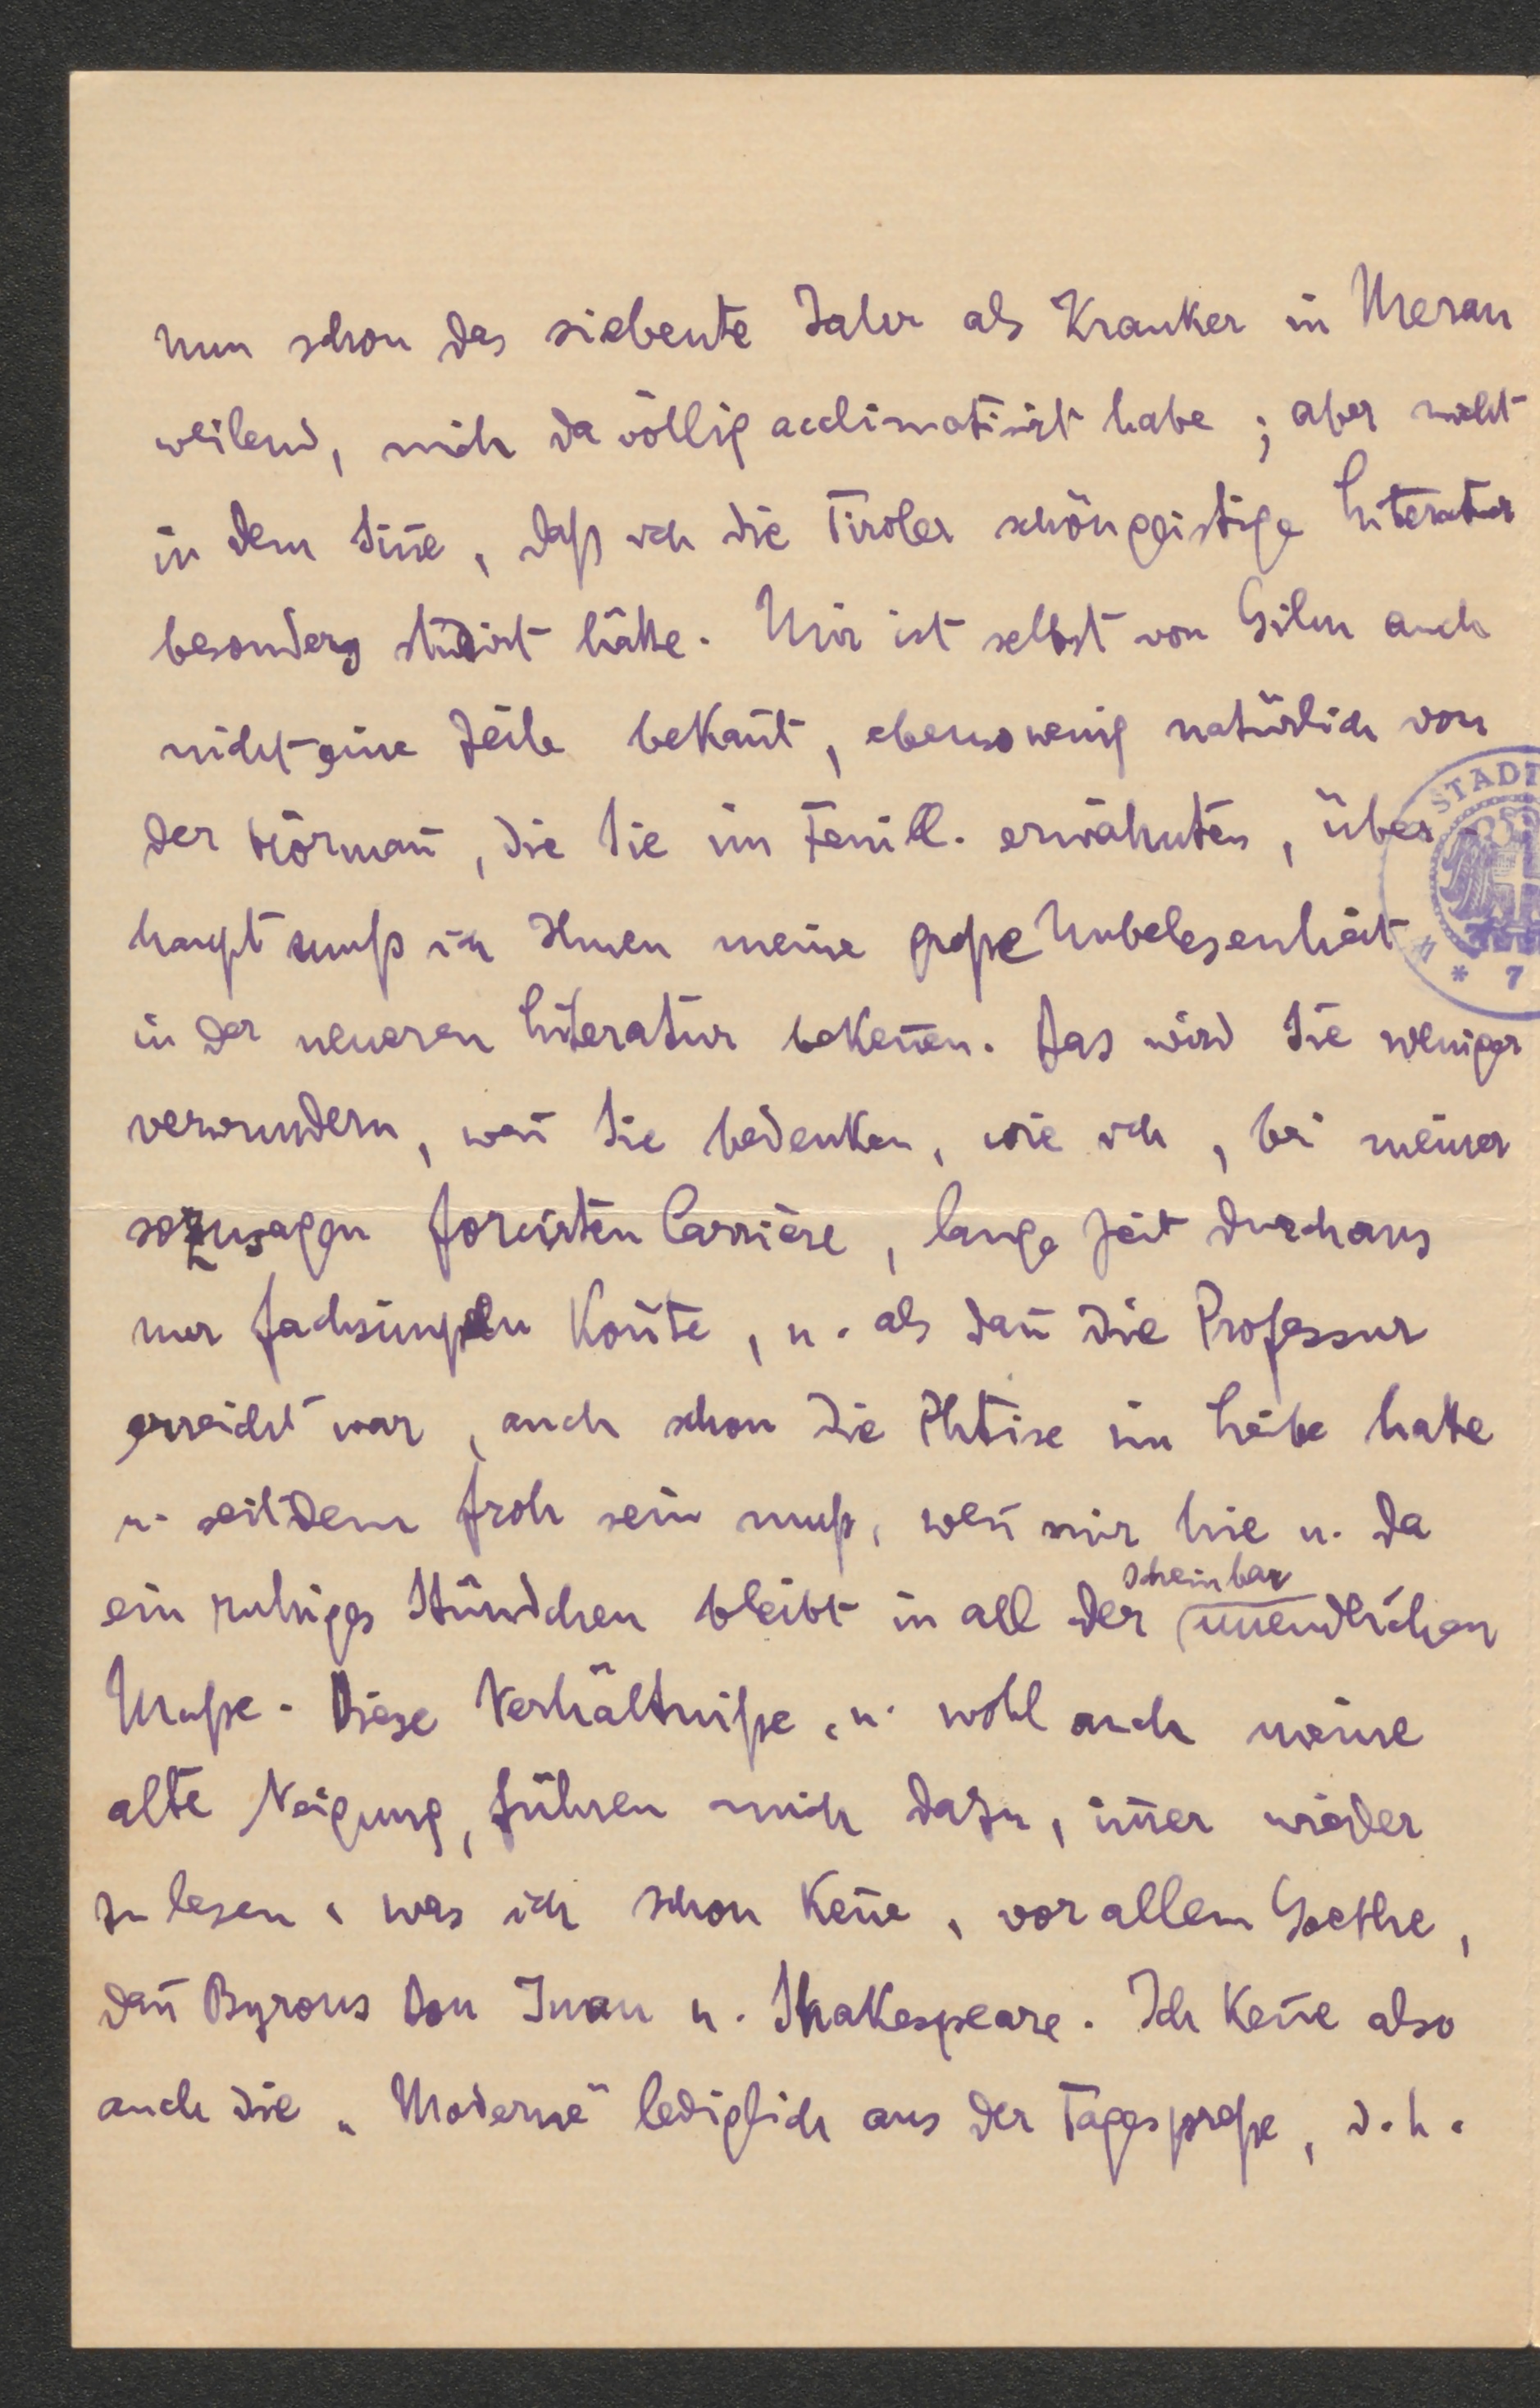 nun schon das siebente Jahr als Kranker in Meran
weilend, mich da völlig acclimatisirt habe; aber nicht
in dem Sin̄e, daß ich die Tiroler schöngeistige Literatur
besonders studirt hätte. Mir ist selbst von Gilm auch
nicht eine Zeile bekan̄t, ebenso wenig natürlich von
der Hörman̄, die Sie im Feuill. erwähnten, über-
haupt muß ich Ihnen meine große Unbelesenheit
in der neueren Literatur beken̄en. Das wird Sie weniger
verwundern, wen̄ Sie bedenken, wie ich, bei meiner
sozusagen forcirten Carrière, lange Zeit durchaus
nur fachsimpeln kon̄te, u. als dan̄ die Professur
erreicht war, auch schon die Phtise im Leibe hatte
u. seitdem froh sein muß, wen̄ mir hie u. da
ein ruhiges Stündchen bleibt in all der scheinbar unendlichen
Muße. Diese Verhältniße, u. wohl auch meine
alte Neigung, führen mich dazu, im̄er wieder
zu lesen, was ich schon ken̄e, vor allem Goethe,
dan̄ Byrons Don Juan u. Shakespeare. Ich ken̄e also
auch die „Moderne" lediglich aus der Tagespreße, d. h.
STADT
* 7